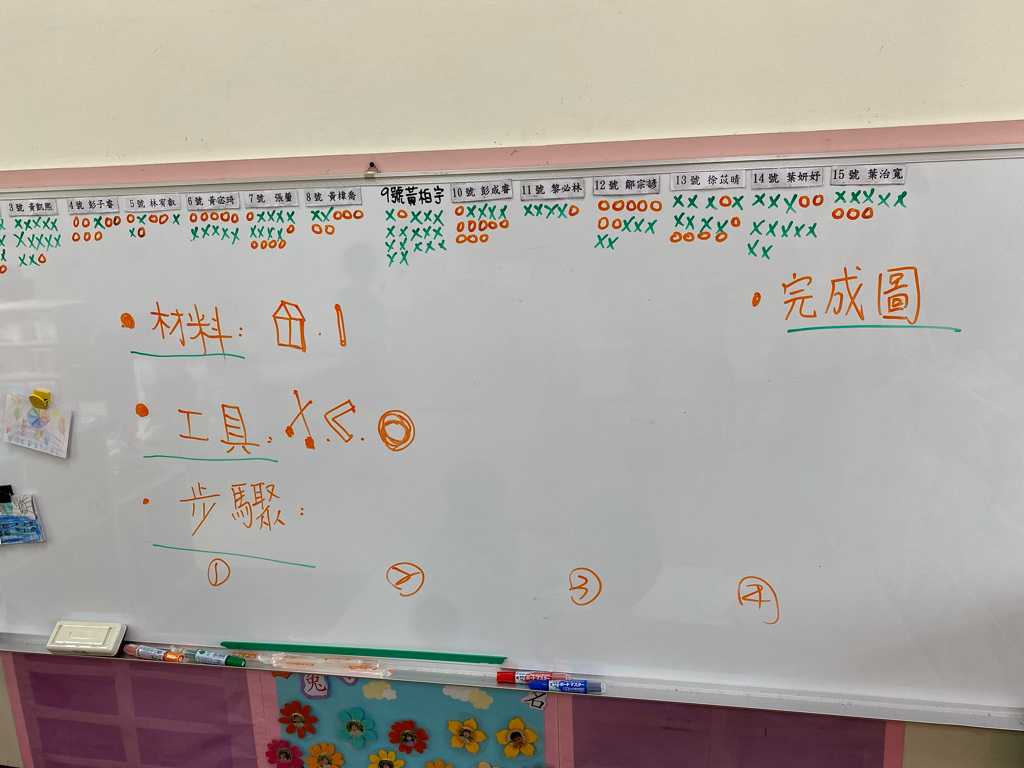 3 號 黃凱熙 4 號 彭子睿 5 號 林宥叡 6 號 黃宓琦 7 號 張蕾 8 號 黃褘喬 9號黃柏宇 10 號 彭成睿 11 號 黎必林 12 號 鄒宗諺 13 號 徐苡晴 14 號 葉妍妤 15 號 葉治寬
• 材料:
• 完成圖
• 工具:
• 步驟:
① ② ③ ④
兔
名